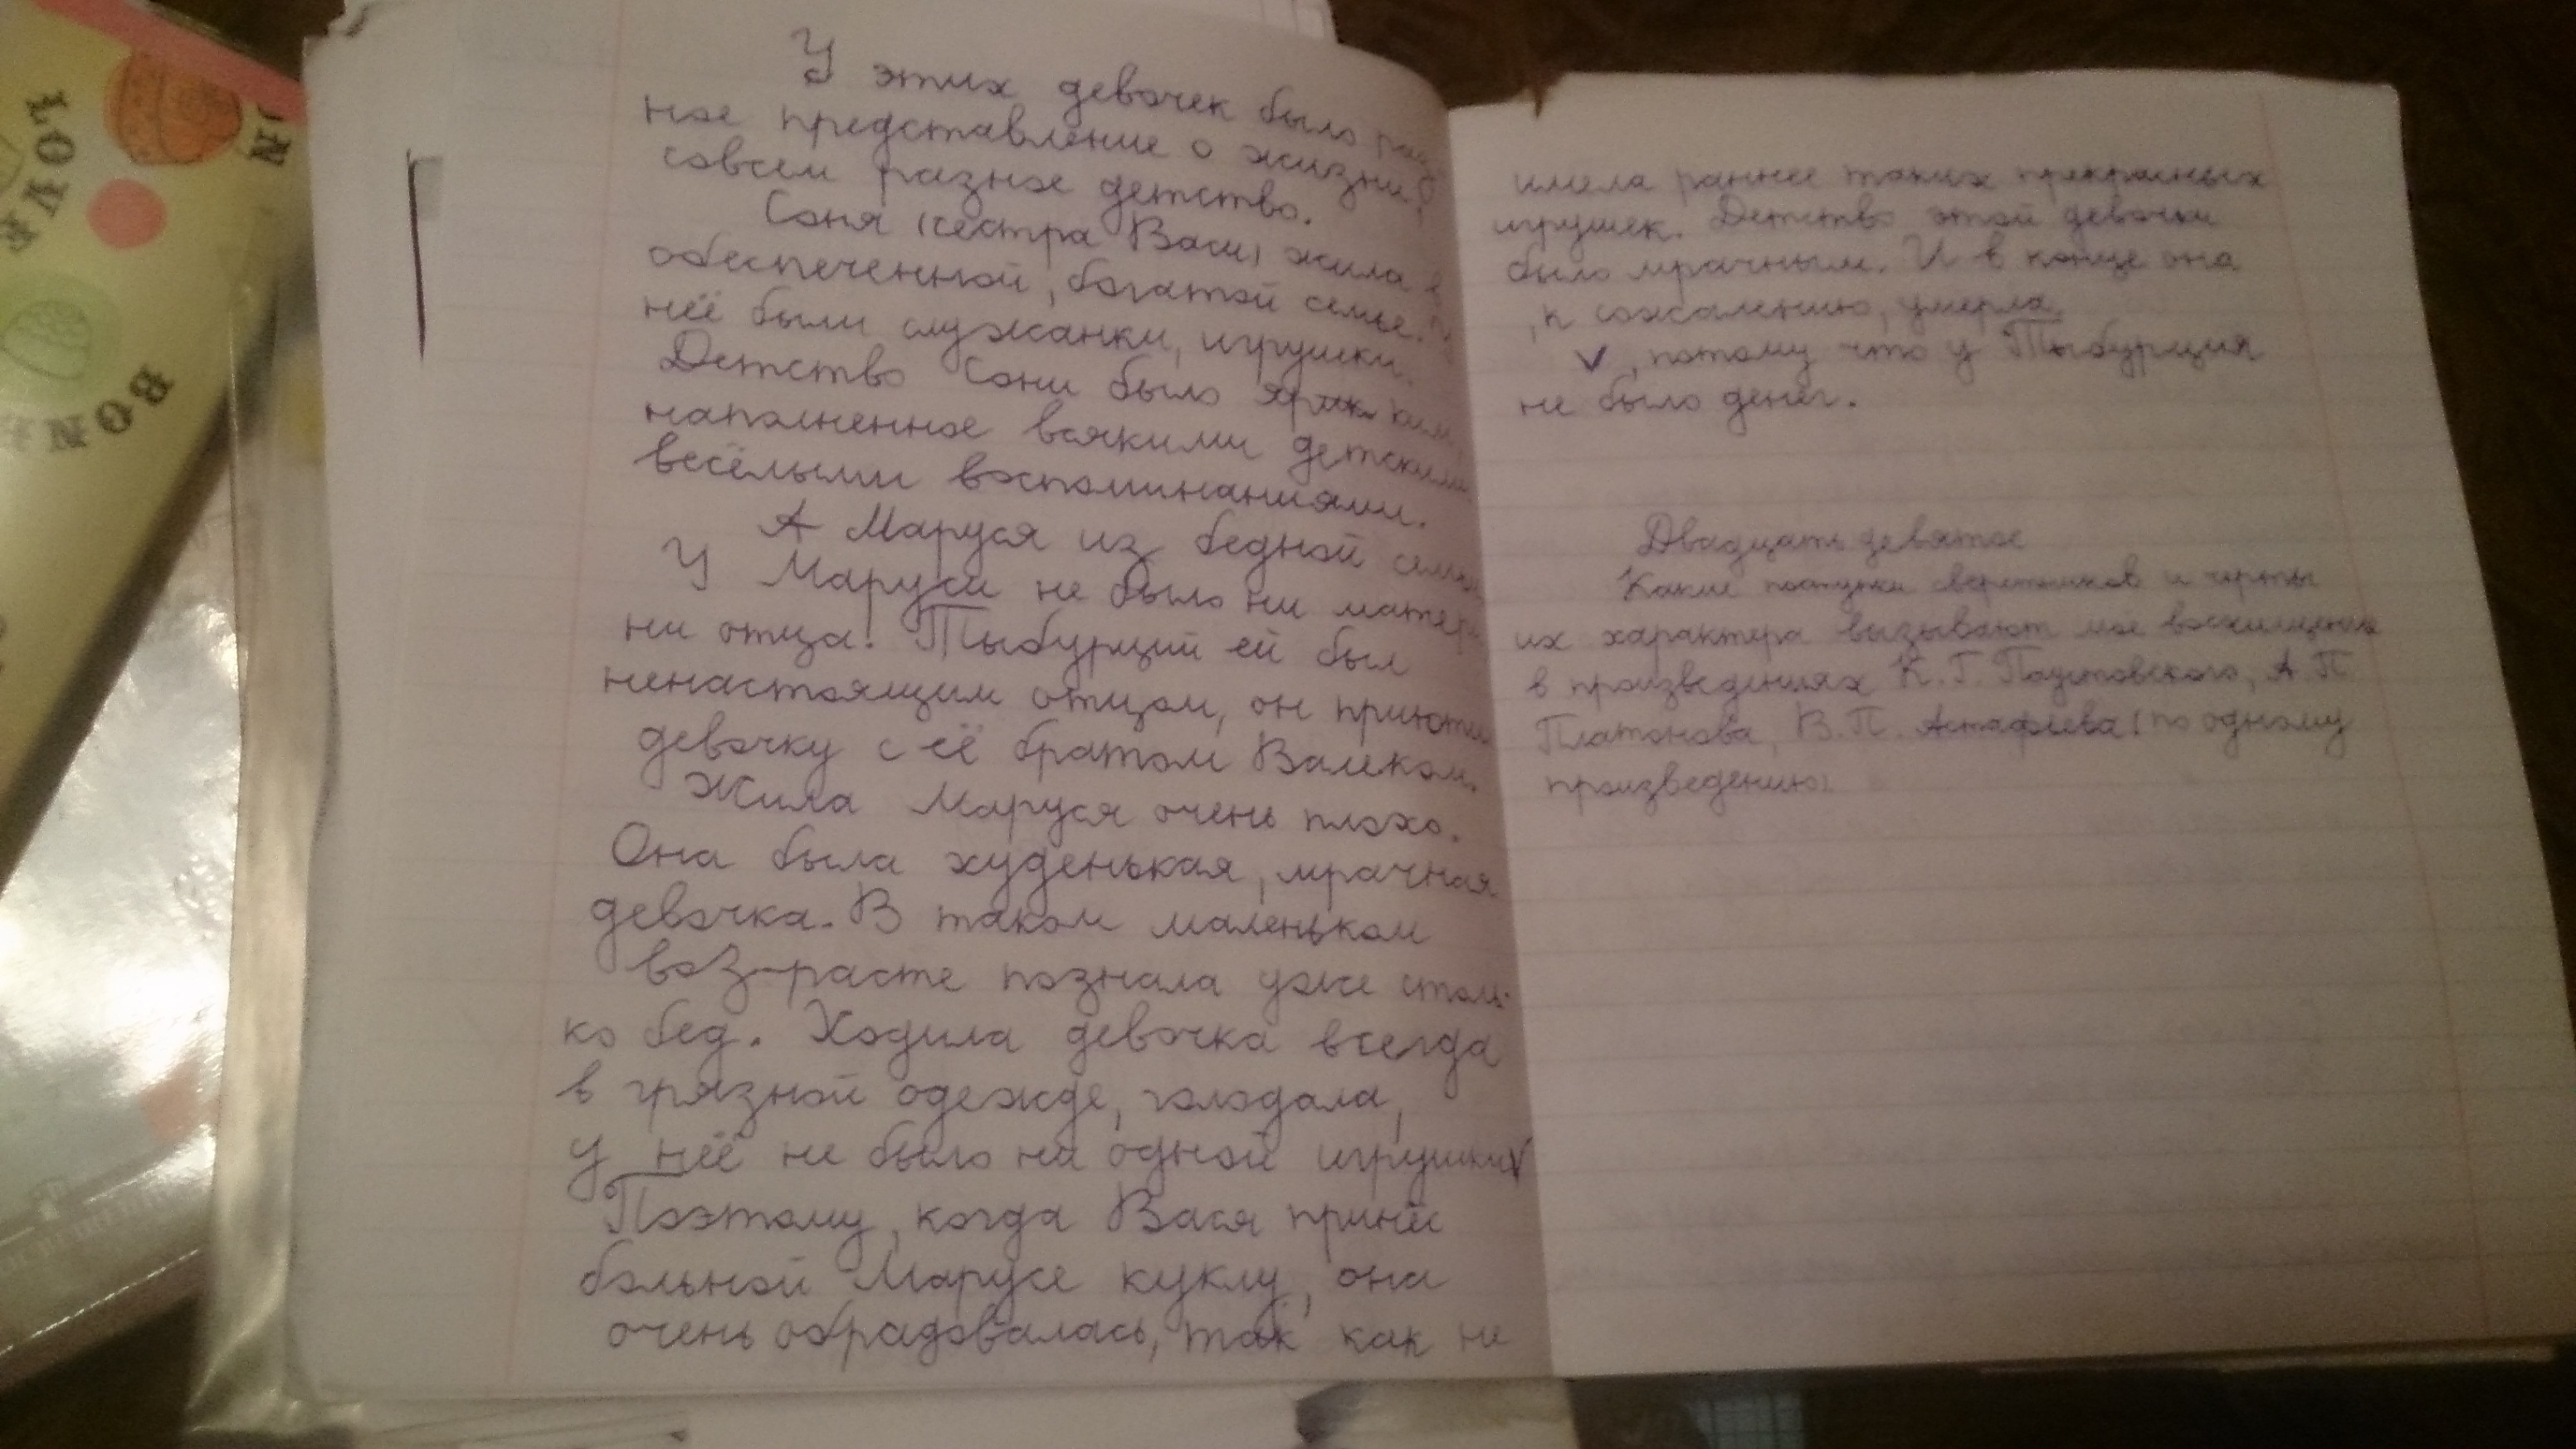 У этих девочек было раз
ное представление о жизни,
совсем разное детство.
Соня (сестра Васи) жила в
обеспеченной, богатой семье. У
неё были служанки, игрушки.
Детство Сони было ким,
наполненное всякими детскими
весёлыми воспоминаниями.
А Маруся из бедной семьи
У Маруси не было ни матери
ни отца. Тыбурций ей был
ненастоящим отцом, он приютил
девочку с её братом Валеком.
Жила Маруся очень плохо.
Она была худенькая, мрачная
девочка. В таком маленьком
воз-расте познала уже столь-
ко бед. Ходила девочка всегда
в грязной одежде, голодала,
у неё не было ни одной игрушки V
Поэтому, когда Вася принёс
больной Марусе куклу, она
очень обрадовалась, так как не
имела раннее таких прекрасных
игрушек. Детство этой девочки
было мрачным. И в конце она
, к сожалению, умерла.
V , потому что у Тыбурция
не было денег.
Двадцать девятое
Какие поступки сверстников и черты
их характера вызывают моё восхищение
в произведениях К.Г. Паустовского, А.П.
Платонова, В.П. Астафьева (по одному
произведению)
LOVE
BON